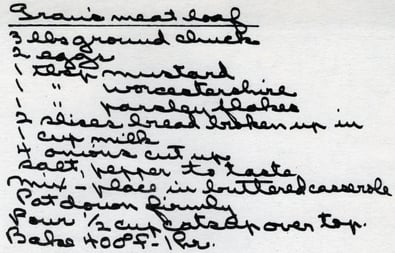 Gran's meat loaf
3 lbs ground chuck
2 eggs
1 tbsp mustard
1 " worcestershire
1 " parsley flakes
2 slises bread broken up in
1 cup milk
4 onions cut up
Salt, pepper to taste
Mix - place in buttered casserole
Pat down firmly
Pour 1/2 cup catsup over top.
Bake 400°F - 1 hr.